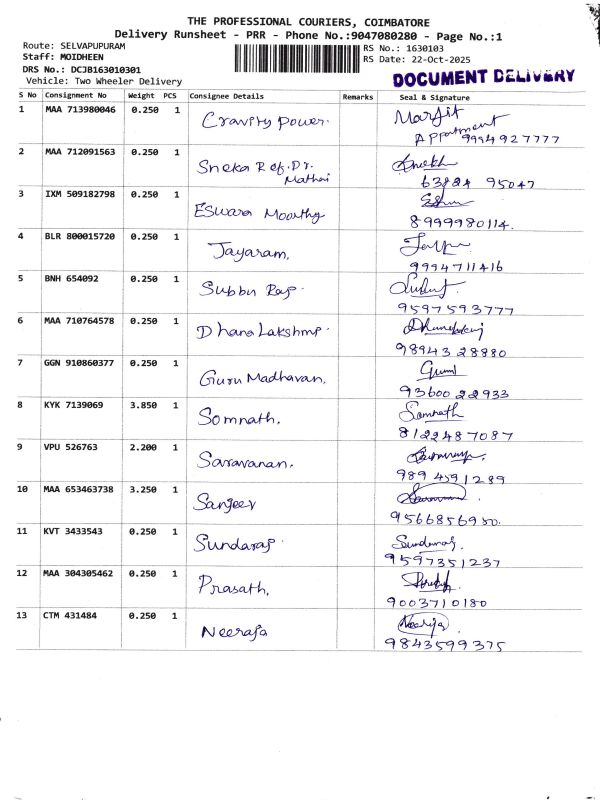 THE PROFESSIONAL COURIERS, COIMBATORE
Delivery Runsheet - PRR - Phone No.:9047080280 - Page No.:1
Route: SELVAPUPURAM
RS No.: 1630103
Staff: MOIDHEEN
RS Date: 22-Oct-2025
DRS No.: DCJB163010301
Vehicle: Two Wheeler Delivery
DOCUMENT DELIVERY
S No Consignment No Weight PCS Consignee Details Remarks Seal & Signature
1 MAA 713980046 0.250 1 Cravity Power. Marfit
Appartment
9994927777
2 MAA 712091563 0.250 1 Sneka Ref. Dr.
Mathai
63824 95047
3 IXM 509182798 0.250 1 Eswara Moorthy
8999980114.
4 BLR 800015720 0.250 1 Jayaram.
9994711416
5 BNH 654092 0.250 1 Subbu Raj.
9597593777
6 MAA 710764578 0.250 1 Dhana Lakshmi.
98943 28880
7 GGN 910860377 0.250 1 Guru Madhavan.
93600 22933
8 KYK 7139069 3.850 1 Somnath. Somnath
8122487087
9 VPU 526763 2.200 1 Saravanan.
989 4591289
10 MAA 653463738 3.250 1 Sanjeev
9566856950.
11 KVT 3433543 0.250 1 Sundaraj. Sundaraj.
9597351237
12 MAA 304305462 0.250 1 Prasath.
9003710180
13 CTM 431484 0.250 1 Neeraja Neeraja
9843599375